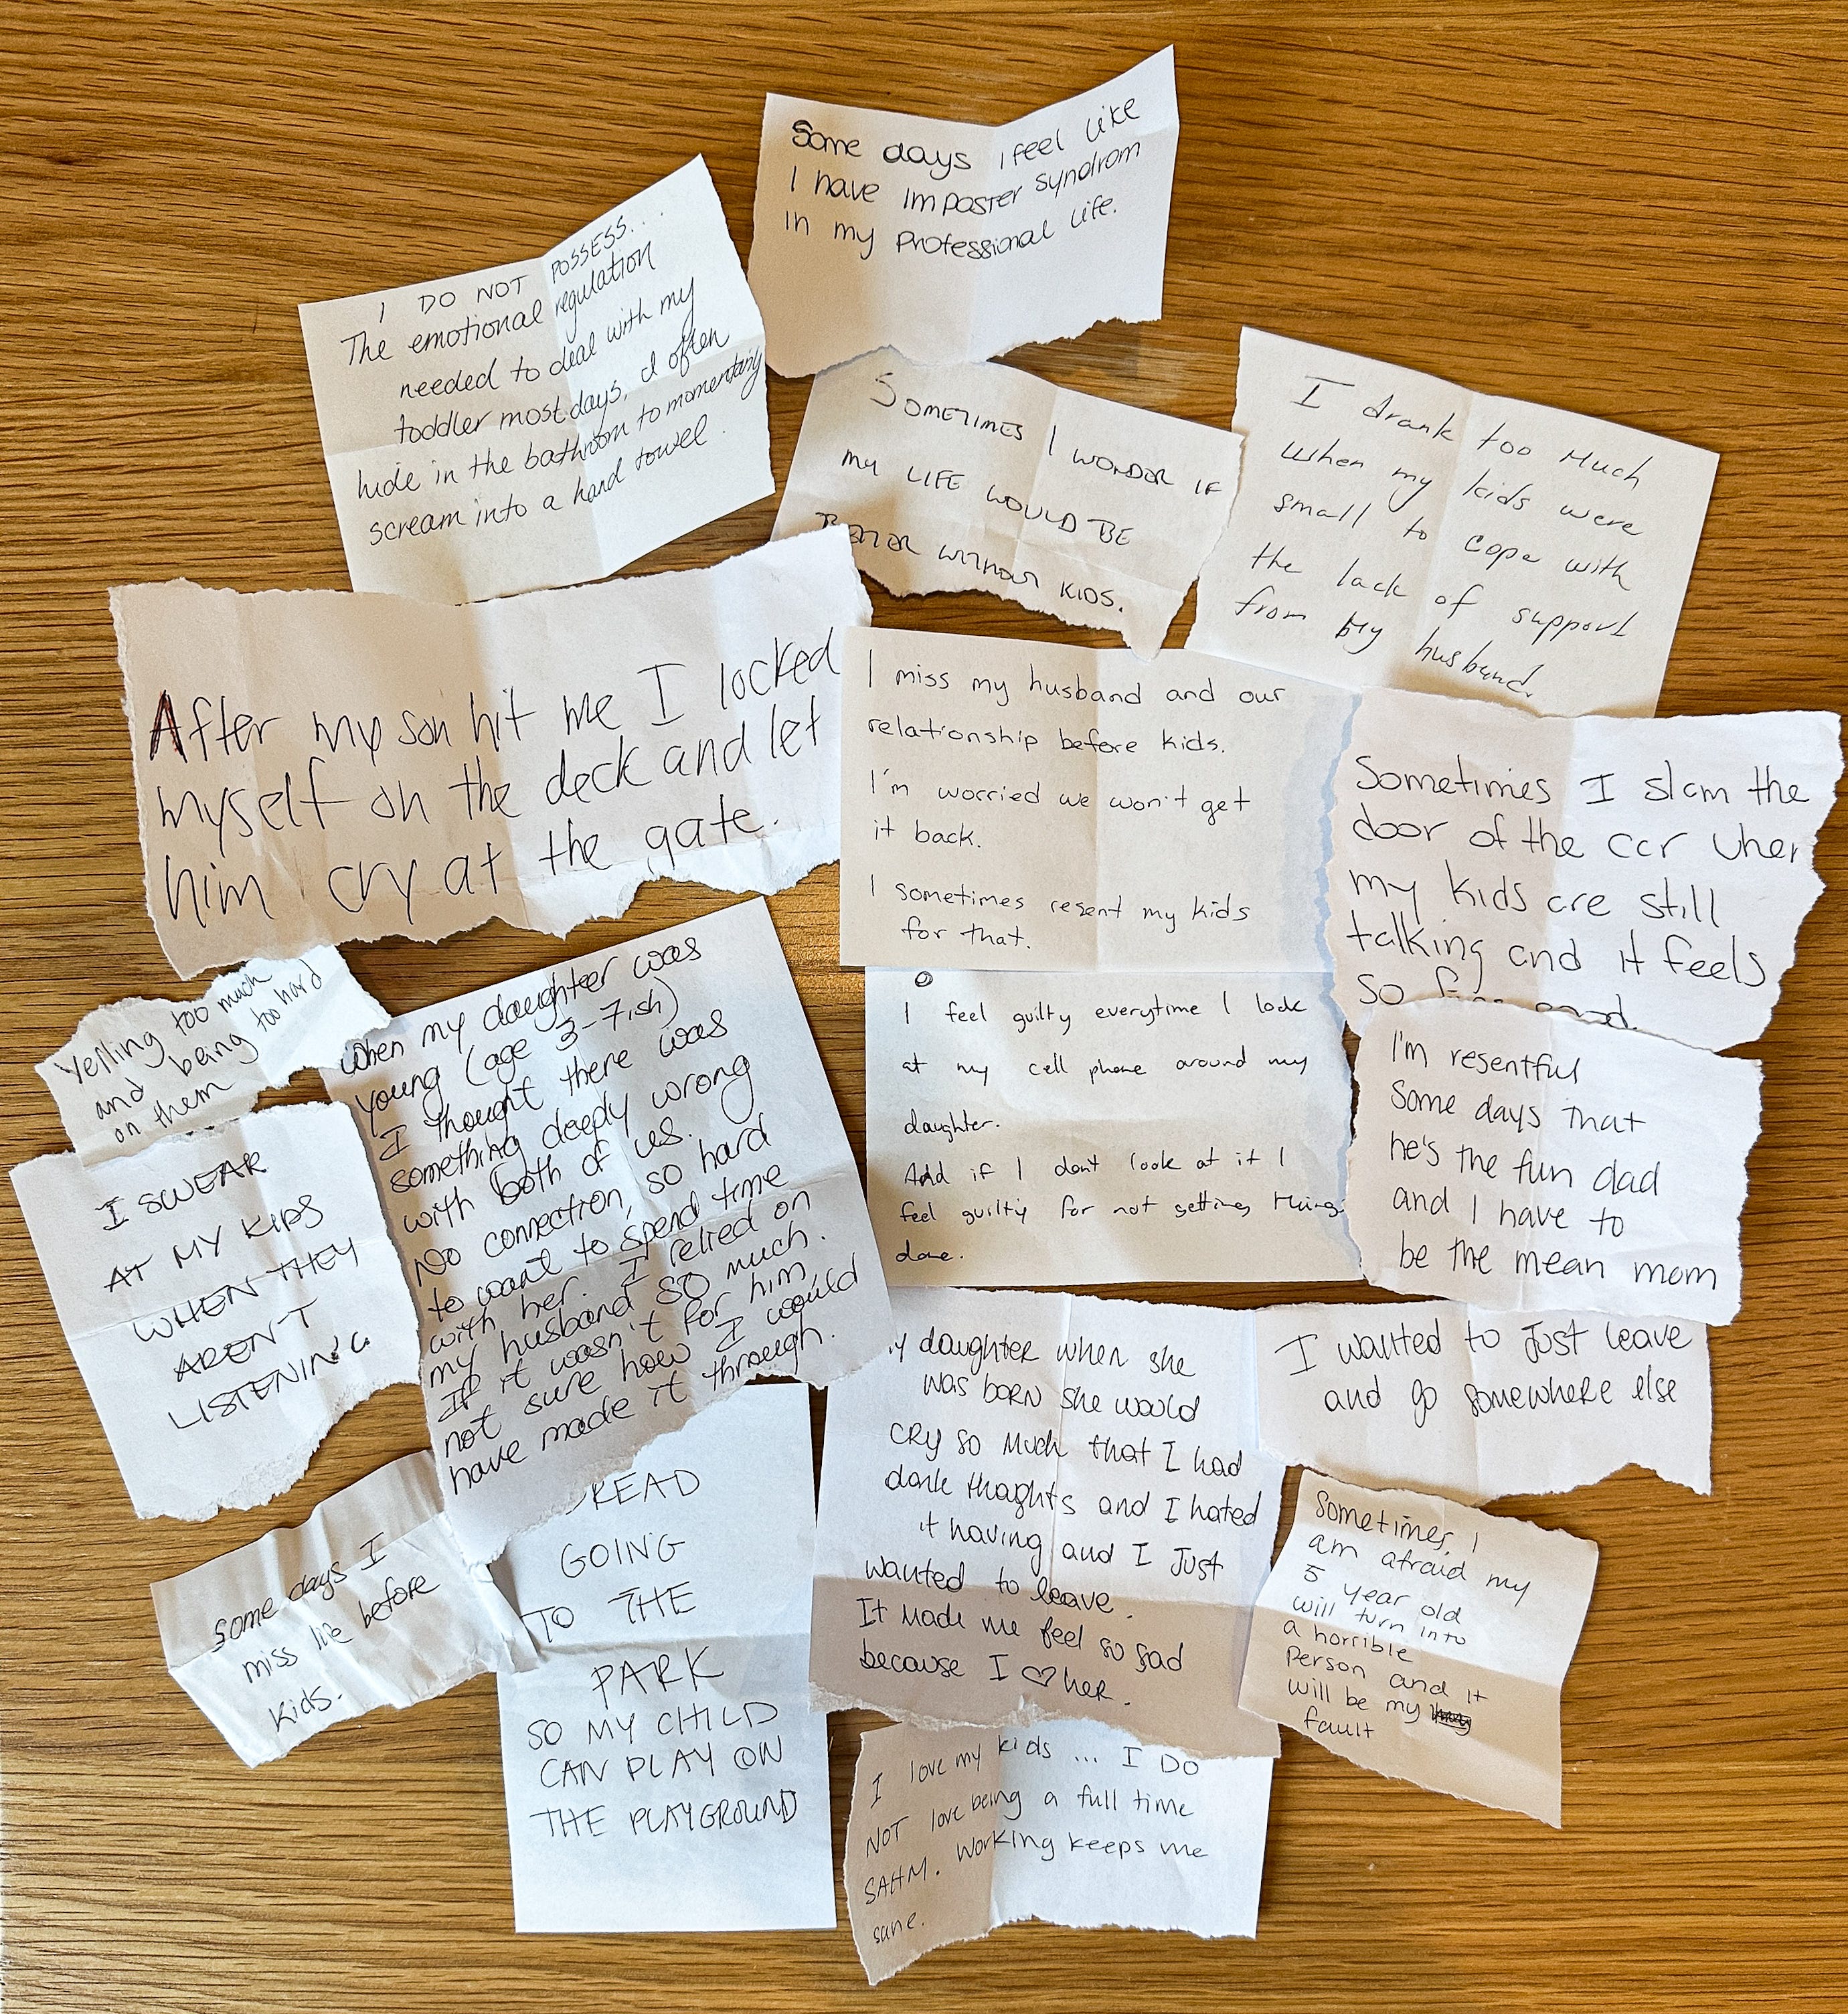 Some days I feel like
I have Imposter Syndrom
in my Professional Life.
I DO NOT POSSESS...
The emotional regulation
needed to deal with my
toddler most days, I often
hide in the bathroom to momentarily
scream into a hand towel.
SOMETIMES I WONDER IF
MY LIFE WOULD BE
BETTER WITHOUT KIDS.
I drank too much
when my kids were
small to cope with
the lack of support
from my husband.
After my son hit me I locked
myself on the deck and let
him cry at the gate.
I miss my husband and our
relationship before kids.
I'm worried we won't get
it back.
I sometimes resent my kids
for that.
Sometimes I slam the
door of the car when
my kids are still
talking and it feels
so good.
Yelling too much
and being too hard
on them
when my daughter was
young (age 3-7ish)
I thought there was
something deeply wrong
with both of us.
No connection, so hard
to want to spend time
with her. I relied on
my husband so much.
If it wasn't for him,
not sure how I would
have made it through.
I feel guilty everytime I look
at my cell phone around my
daughter.
And if I don't look at it I
feel guilty for not getting things
done.
I'm resentful
Some days that
he's the fun dad
and I have to
be the mean mom
I SWEAR
AT MY KIDS
WHEN THEY
AREN'T
LISTENING
y daughter when she
was born she would
cry so much that I had
dark thoghts and I hated
it having and I just
wanted to leave.
It made me feel so sad
because I ♡ her.
I wanted to just leave
and go somewhere else
some days I
miss life before
kids.
DREAD
GOING
TO THE
PARK
SO MY CHILD
CAN PLAY ON
THE PLAYGROUND
Sometimes, I
am afraid my
5 year old
will turn into
a horrible
person and it
will be my
fault
I love my kids ... I DO
NOT love being a full time
SAHM. Working keeps me
sane.